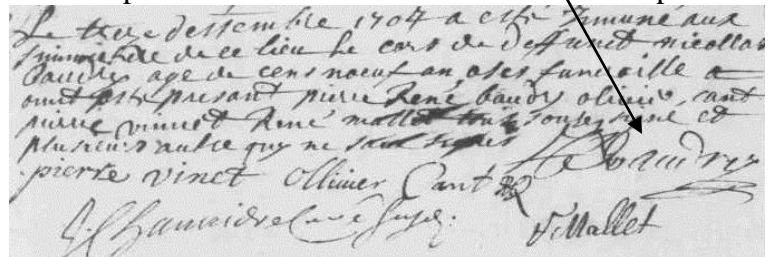 Le treze dessembre 1704 a esté Inmuné aux
simmitiere de ce lieu le cors de deffunct nicollas
baudry age de cens noeuf an oses funeraille a
onst este presant pierre René baudry olivier cant
pierre vinnet René mallet tous sousigne et
plusieurs autre quy ne savt signer
pierre vinet Ollivier Cant R Baudry
curé R Mallet